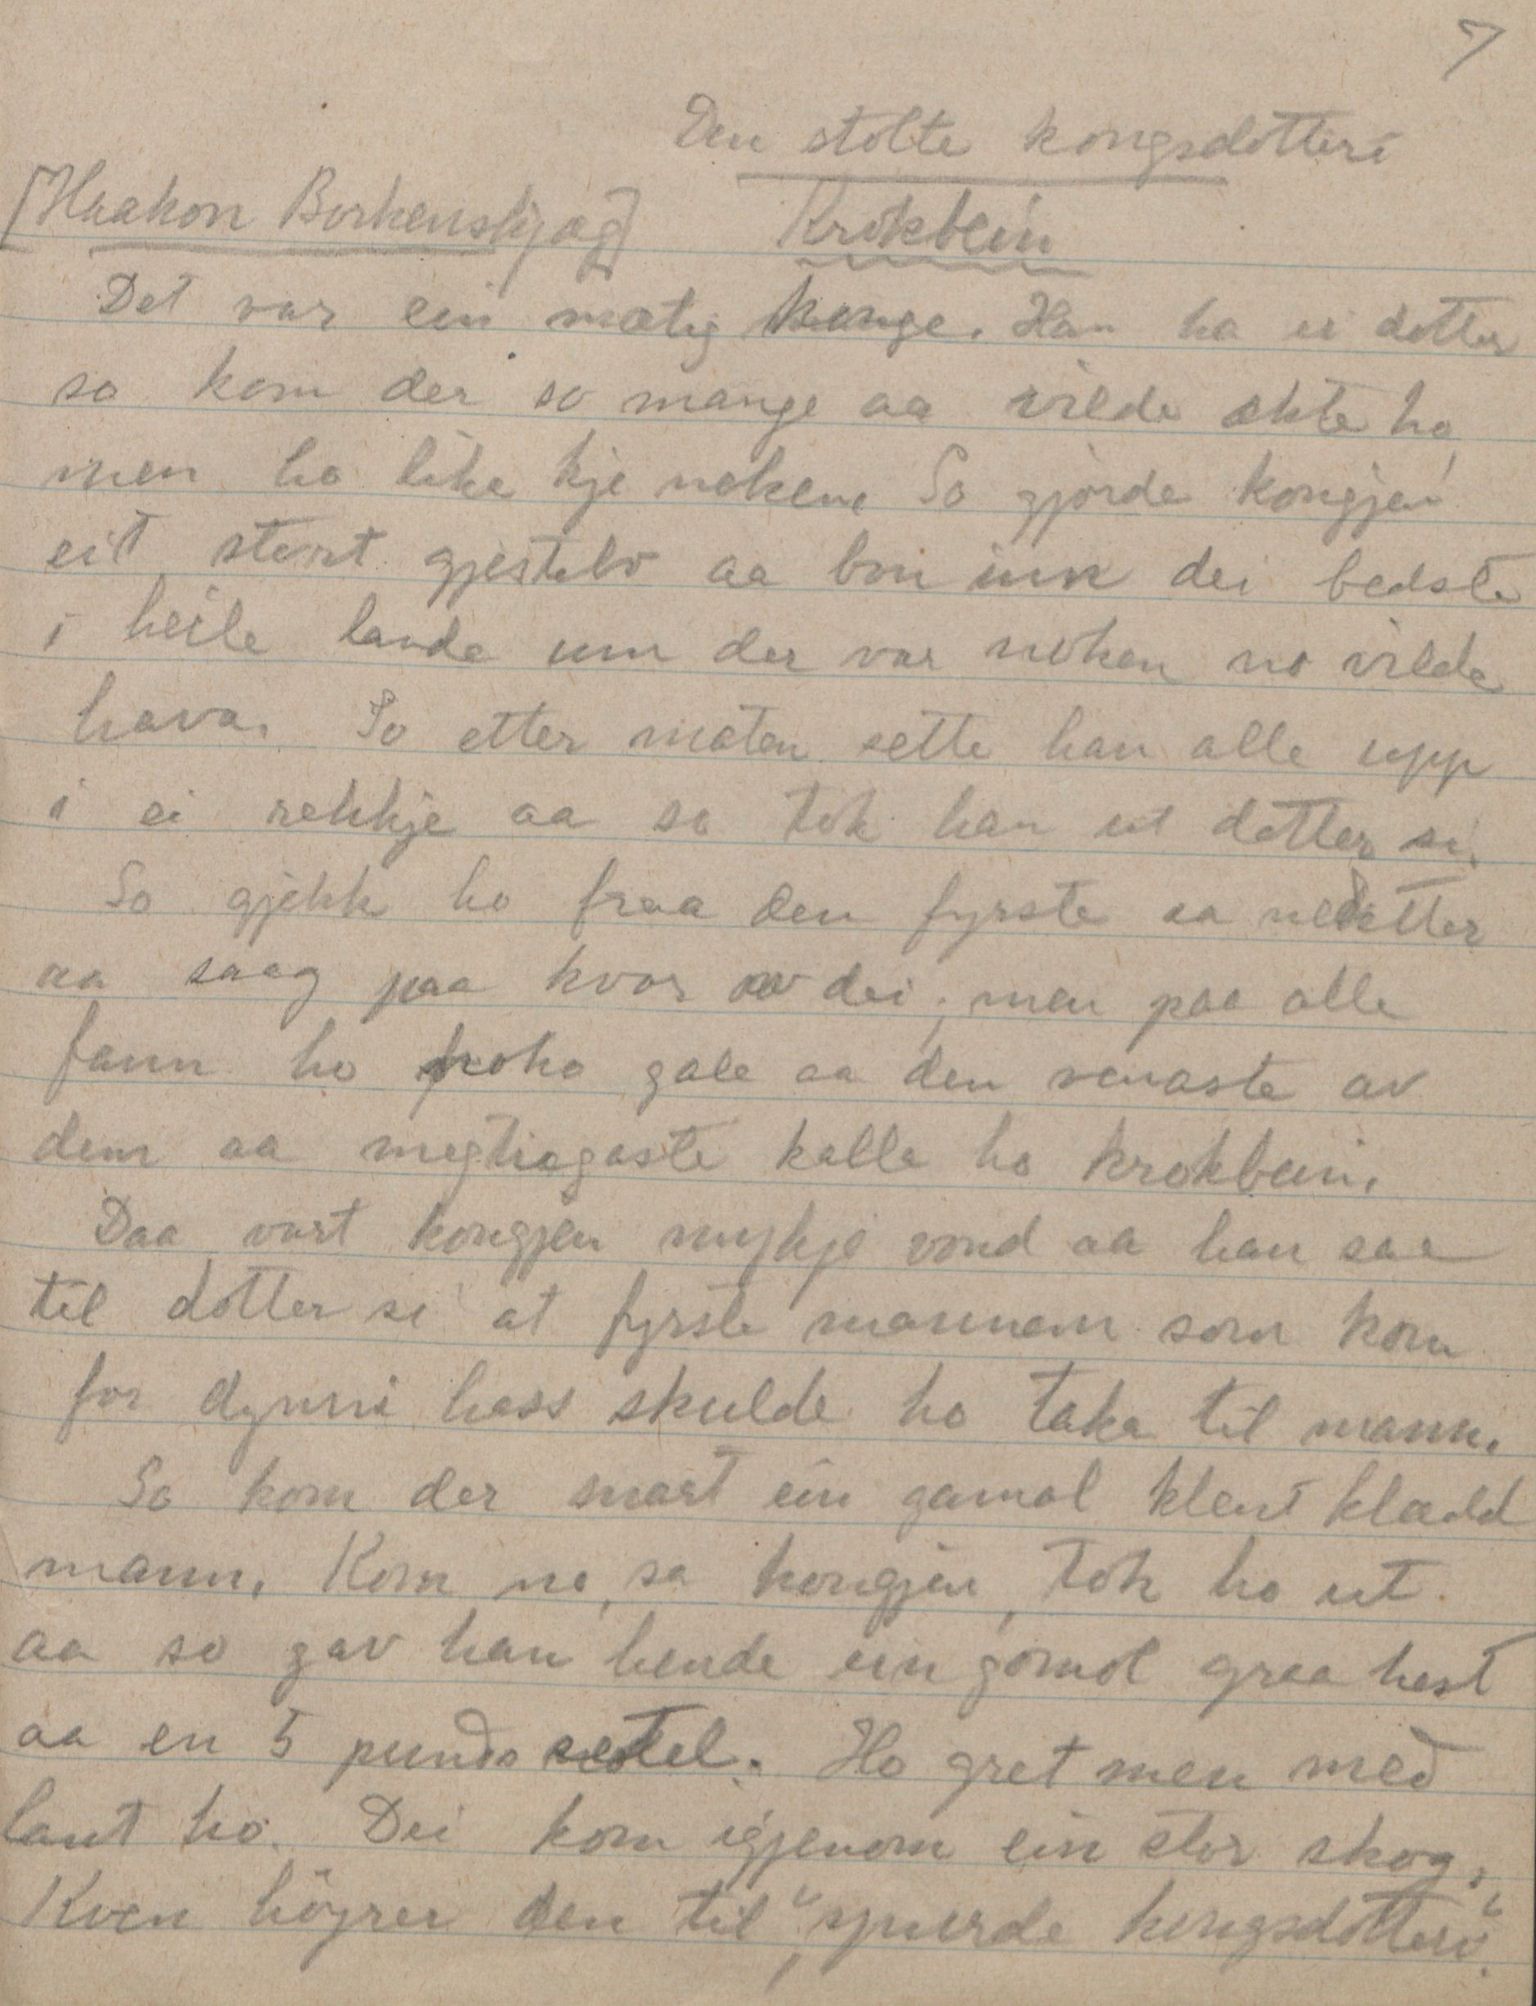 7
Den stolte kongsdotteri
[Haakon Borkenshjag] Krokbein
Det var ein mætig konge. Han ha ei dotter
so kom der so mange aa vilde ekte ho
men ho lika kje nokene So gjorde kongjen
eit stort gjestebo aa bou inn dei bedste
i heile lande um der var noken no vilde
hava. So etter maten sette han alle upp
i ei rekkje aa so tok han ut dotter si.
So gjekk ho fraa den fyrste aa nedetter
aa saag paa kvar av dei; men paa alle
fann ho noko gale aa den venaste av
dem aa megtiogaste kalla ho krokbein.
Daa vart kongjen mykje vond aa han saa
til dotter si at fyrste mannem som kom
for dynni hass skulde ho taka til mann.
So kom der snart ein gamal klent klædd
mann. Kom no, sa kongjen, tok ho ut
aa so gav han hende ein gomol graa hest
aa en 5 punds setel. Ho gret men med
laut ho. Dei kom igjenom ein stor skog.
Kven höyrer den til", spurde kongsdotteri".